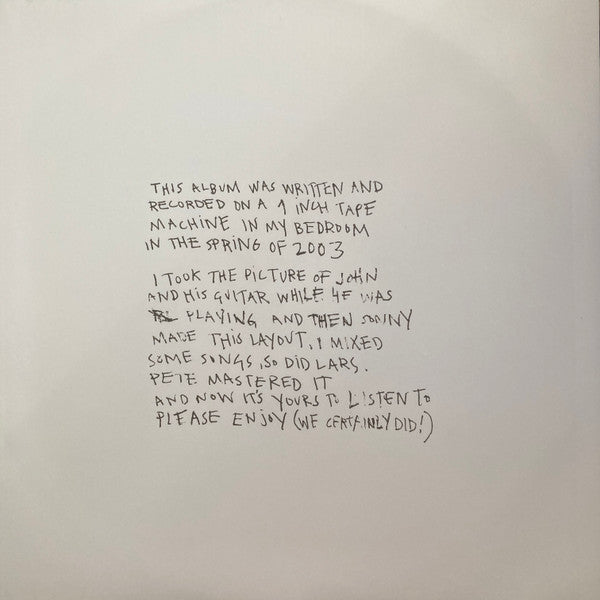 THIS ALBUM WAS WRITTEN AND
RECORDED ON A 1 INCH TAPE
MACHINE IN MY BEDROOM
IN THE SPRING OF 2003
I TOOK THE PICTURE OF JOHN
AND HIS GUITAR WHILE HE WAS
PLAYING AND THEN SONNY
MADE THIS LAYOUT, I MIXED
SOME SONGS, SO DID LARS.
PETE MASTERED IT
AND NOW IT'S YOURS TO LISTEN TO
PLEASE ENJOY (WE CERTAINLY DID!)